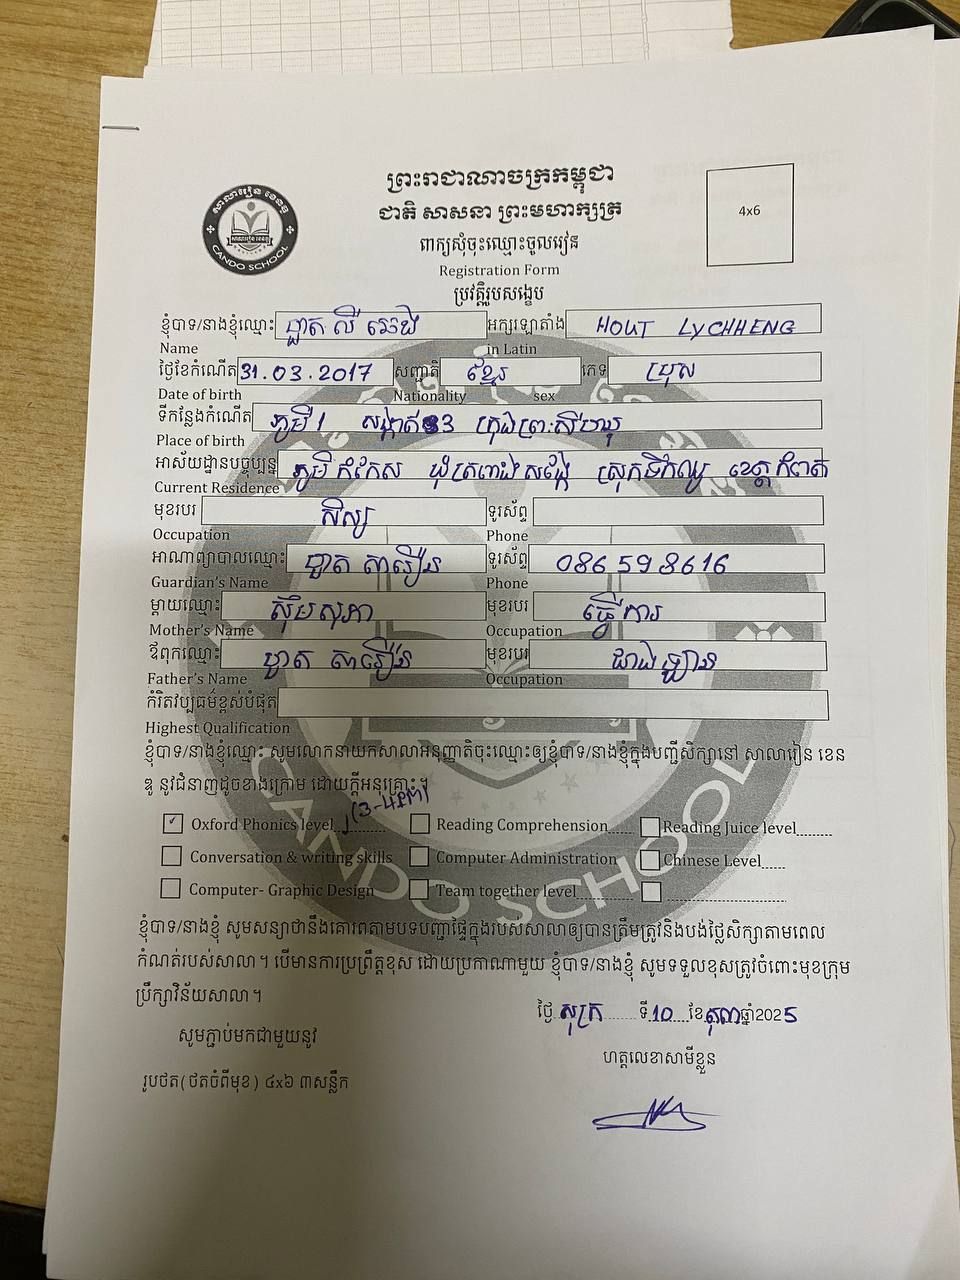 ព្រះរាជាណាចក្រកម្ពុជា
ជាតិ សាសនា ព្រះមហាក្សត្រ
សាលារៀន ខេនឌូ
CANDO SCHOOL
4x6
ពាក្យសុំចុះឈ្មោះចូលរៀន
Registration Form
ប្រវត្តិរូបសង្ខេប
ខ្ញុំបាទ/នាងខ្ញុំឈ្មោះ ហួត លី ហេង អក្សរឡាតាំង HOUT LYCHHENG
Name in Latin
ថ្ងៃខែកំណើត 31.03.2017 សញ្ជាតិ ខ្មែរ ភេទ ប្រុស
Date of birth Nationality sex
ទីកន្លែងកំណើត ភូមិ1 សង្កាត់3 ក្រុងព្រះសីហនុ
Place of birth
អាស័យដ្ឋានបច្ចុប្បន្ន ភូមិកំកែស ឃុំត្រពាំងសង្កែ ស្រុកទឹកឈូ ខេត្តកំពត
Current Residence
មុខរបរ សិស្ស ទូរស័ព្ទ
Occupation Phone
អាណាព្យាបាលឈ្មោះ ហួត តារឿន ទូរស័ព្ទ 086 59 8616
Guardian's Name Phone
ម្តាយឈ្មោះ ស៊ឹម សុភា មុខរបរ ធ្វើការ
Mother's Name Occupation
ឪពុកឈ្មោះ ហួត តារឿន មុខរបរ ជាងឡាន
Father's Name Occupation
កំរិតវប្បធម៌ខ្ពស់បំផុត
Highest Qualification
ខ្ញុំបាទ/នាងខ្ញុំឈ្មោះ សូមលោកនាយកសាលាអនុញ្ញាតិចុះឈ្មោះឲ្យខ្ញុំបាទ/នាងខ្ញុំក្នុងបញ្ជីសិក្សានៅ សាលារៀន ខេន
ឌូ នូវជំនាញដូចខាងក្រោម ដោយក្តីអនុគ្រោះ។
Oxford Phonics level 1 (3-4PM) Reading Comprehension Reading Juice level
Conversation & writing skills Computer Administration Chinese Level
Computer- Graphic Design Team together level
ខ្ញុំបាទ/នាងខ្ញុំ សូមសន្យាថានឹងគោរពតាមបទបញ្ជាផ្ទៃក្នុងរបស់សាលាឲ្យបានត្រឹមត្រូវនិងបង់ថ្លៃសិក្សាតាមពេល
កំណត់របស់សាលា។ បើមានការប្រព្រឹត្តខុស ដោយប្រការណាមួយ ខ្ញុំបាទ/នាងខ្ញុំ សូមទទួលខុសត្រូវចំពោះមុខក្រុម
ប្រឹក្សាវិន័យសាលា។
ថ្ងៃ សុក្រ ទី10 ខែតុលា ឆ្នាំ2025
សូមភ្ជាប់មកជាមួយនូវ
ហត្ថលេខាសាមីខ្លួន
រូបថត(ថតចំពីមុខ) ៤x៦ ៣សន្លឹក